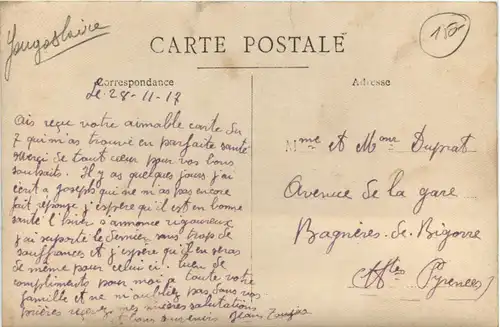 Yougoslavie
150
CARTE POSTALE
Correspondance
Adresse
Le 28-11-17
Ais reçu votre aimable carte du
7 qui m'as trouvé en parfaite santé
Merci de tout cœur pour vos bons
souhaits. Il y as quelques jours j'ai
écrit a Joseph qui ne m'as pas encore
fait réponse j'espère qu'il est en bonne
santé l'hiver s'annonce rigoureux
j'ai supporté le dernier sans trop de
souffrances et j'espère qu'il en seras
de même pour celui ci. bien de
compliments pour moi a toute votre
famille et ne m'oubliez pas dans vos
prières recevez mes
salutations
Jean
Mme et Mons Duprat
Avenue de la gare
Bagnères-de-Bigorre
(Htes Pyrénées)